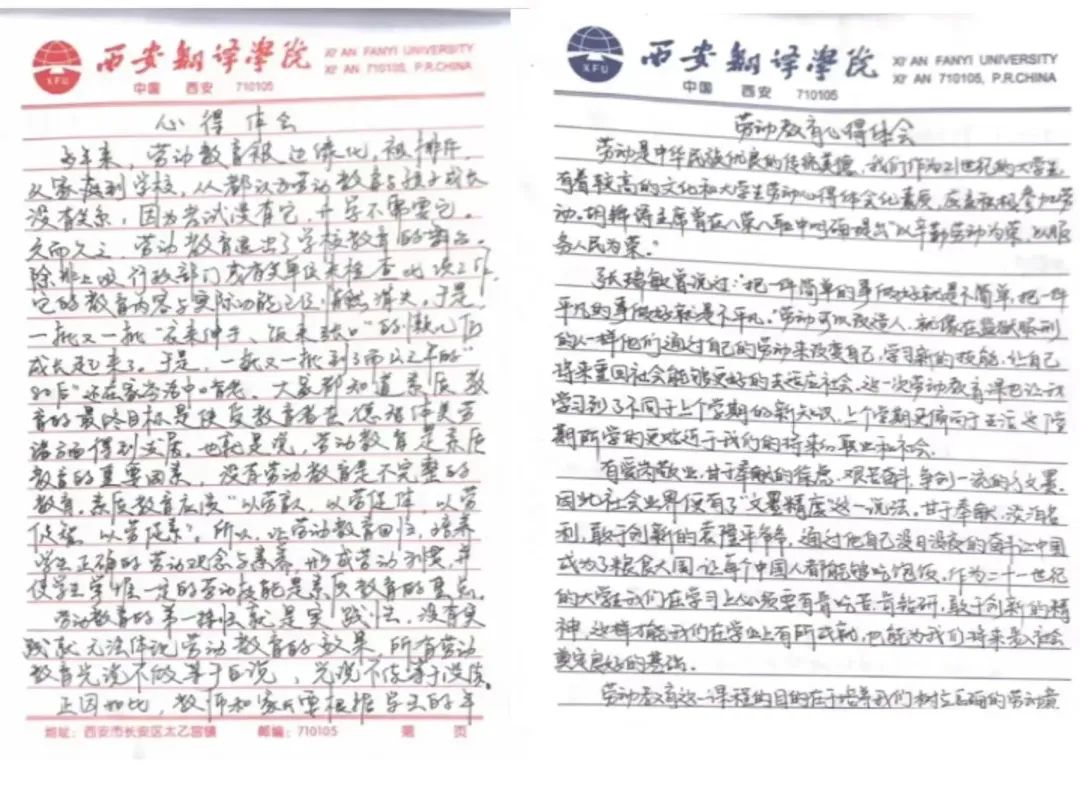 西安翻译学院
XI'AN FANYI UNIVERSITY
XI'AN 710105, P.R.CHINA
XFU
中国 西安 710105
心得体会
多年来，劳动教育被边缘化，被排斥，
从家庭到学校，从都认为劳动教育与孩子成长
没有关系，因为考试没有它，升学不需要它。
久而久之，劳动教育退出了学校教育的舞台。
除非上级行政部门或有关单位来检查此项工作，
它的教育内容与实际功能已经悄然消失，于是，
一批又一批"衣来伸手、饭来张口"的懒儿们
成长起来了。于是，一批又一批到了而立之年的"
80后"还在家
大家都知道素质教
育的最终目标是使受教育者在德智体美劳
诸方面得到发展。也就是说，劳动教育是素质
教育的重要因素，没有劳动教育是不完整的
教育。素质教育应该"以劳 以劳促体，以劳
促智，以劳促美"。所以，让劳动教育回归，培养
学生正确的劳动观念与素养，形成劳动习惯，并
使学生掌握一定的劳动技能是素质教育的重点。
劳动教育的第一特性就是实践性，没有实
践就无法体现劳动教育的效果，所有劳动
教育光说不做等于白说，光说不练等于没练。
正因如此，教师和家长要根据学生的年
地址：西安市长安区太乙宫镇 邮编：710105 第 页
西安翻译学院
XI'AN FANYI UNIVERSITY
XI'AN 710105, P.R.CHINA
XFU
中国 西安 710105
劳动教育心得体会
劳动是中华民族优良的传统美德，我们作为21世纪的大学生
有着较高的文化和大学生劳动心得体会化素质，应当积极参加劳
动。胡锦涛主席曾在八荣八耻中明确提出"以辛勤劳动为荣，以服
务人民为荣。"
张瑞敏曾说过："把一件简单的事做好就是不简单，把一件
平凡的事做好就是不平凡。"劳动可以改造人，就像在监狱服刑
的人一样他们通过自己的劳动来改变自己，学习新的技能，让自己
将来重回社会能够更好的去适应社会。这一次劳动教育课也让我
学习到了不同于上个学期的新知识，上个学期更偏向于生活这学
期所学的更贴近于我们的将来的职业和社会。
有爱岗敬业，甘于奉献的徐虎。艰苦奋斗，争创一流的
因此社会业界便有了"文墨精度"这一说法。甘于奉献，淡泊名
利，敢于创新的袁隆平爷爷，通过他自己没日没夜的奋斗让中国
成为了粮食大国，让每个中国人都能够吃饱饭，作为二十一世纪
的大学生我们在学习上必须要有肯吃苦，肯钻研，敢于创新的精
神，这样才能我们在学业上有所成就，也能为我们将来步入社会
奠定良好的基础。
劳动教育这一课程的目的在于培养我们树立正确的劳动意